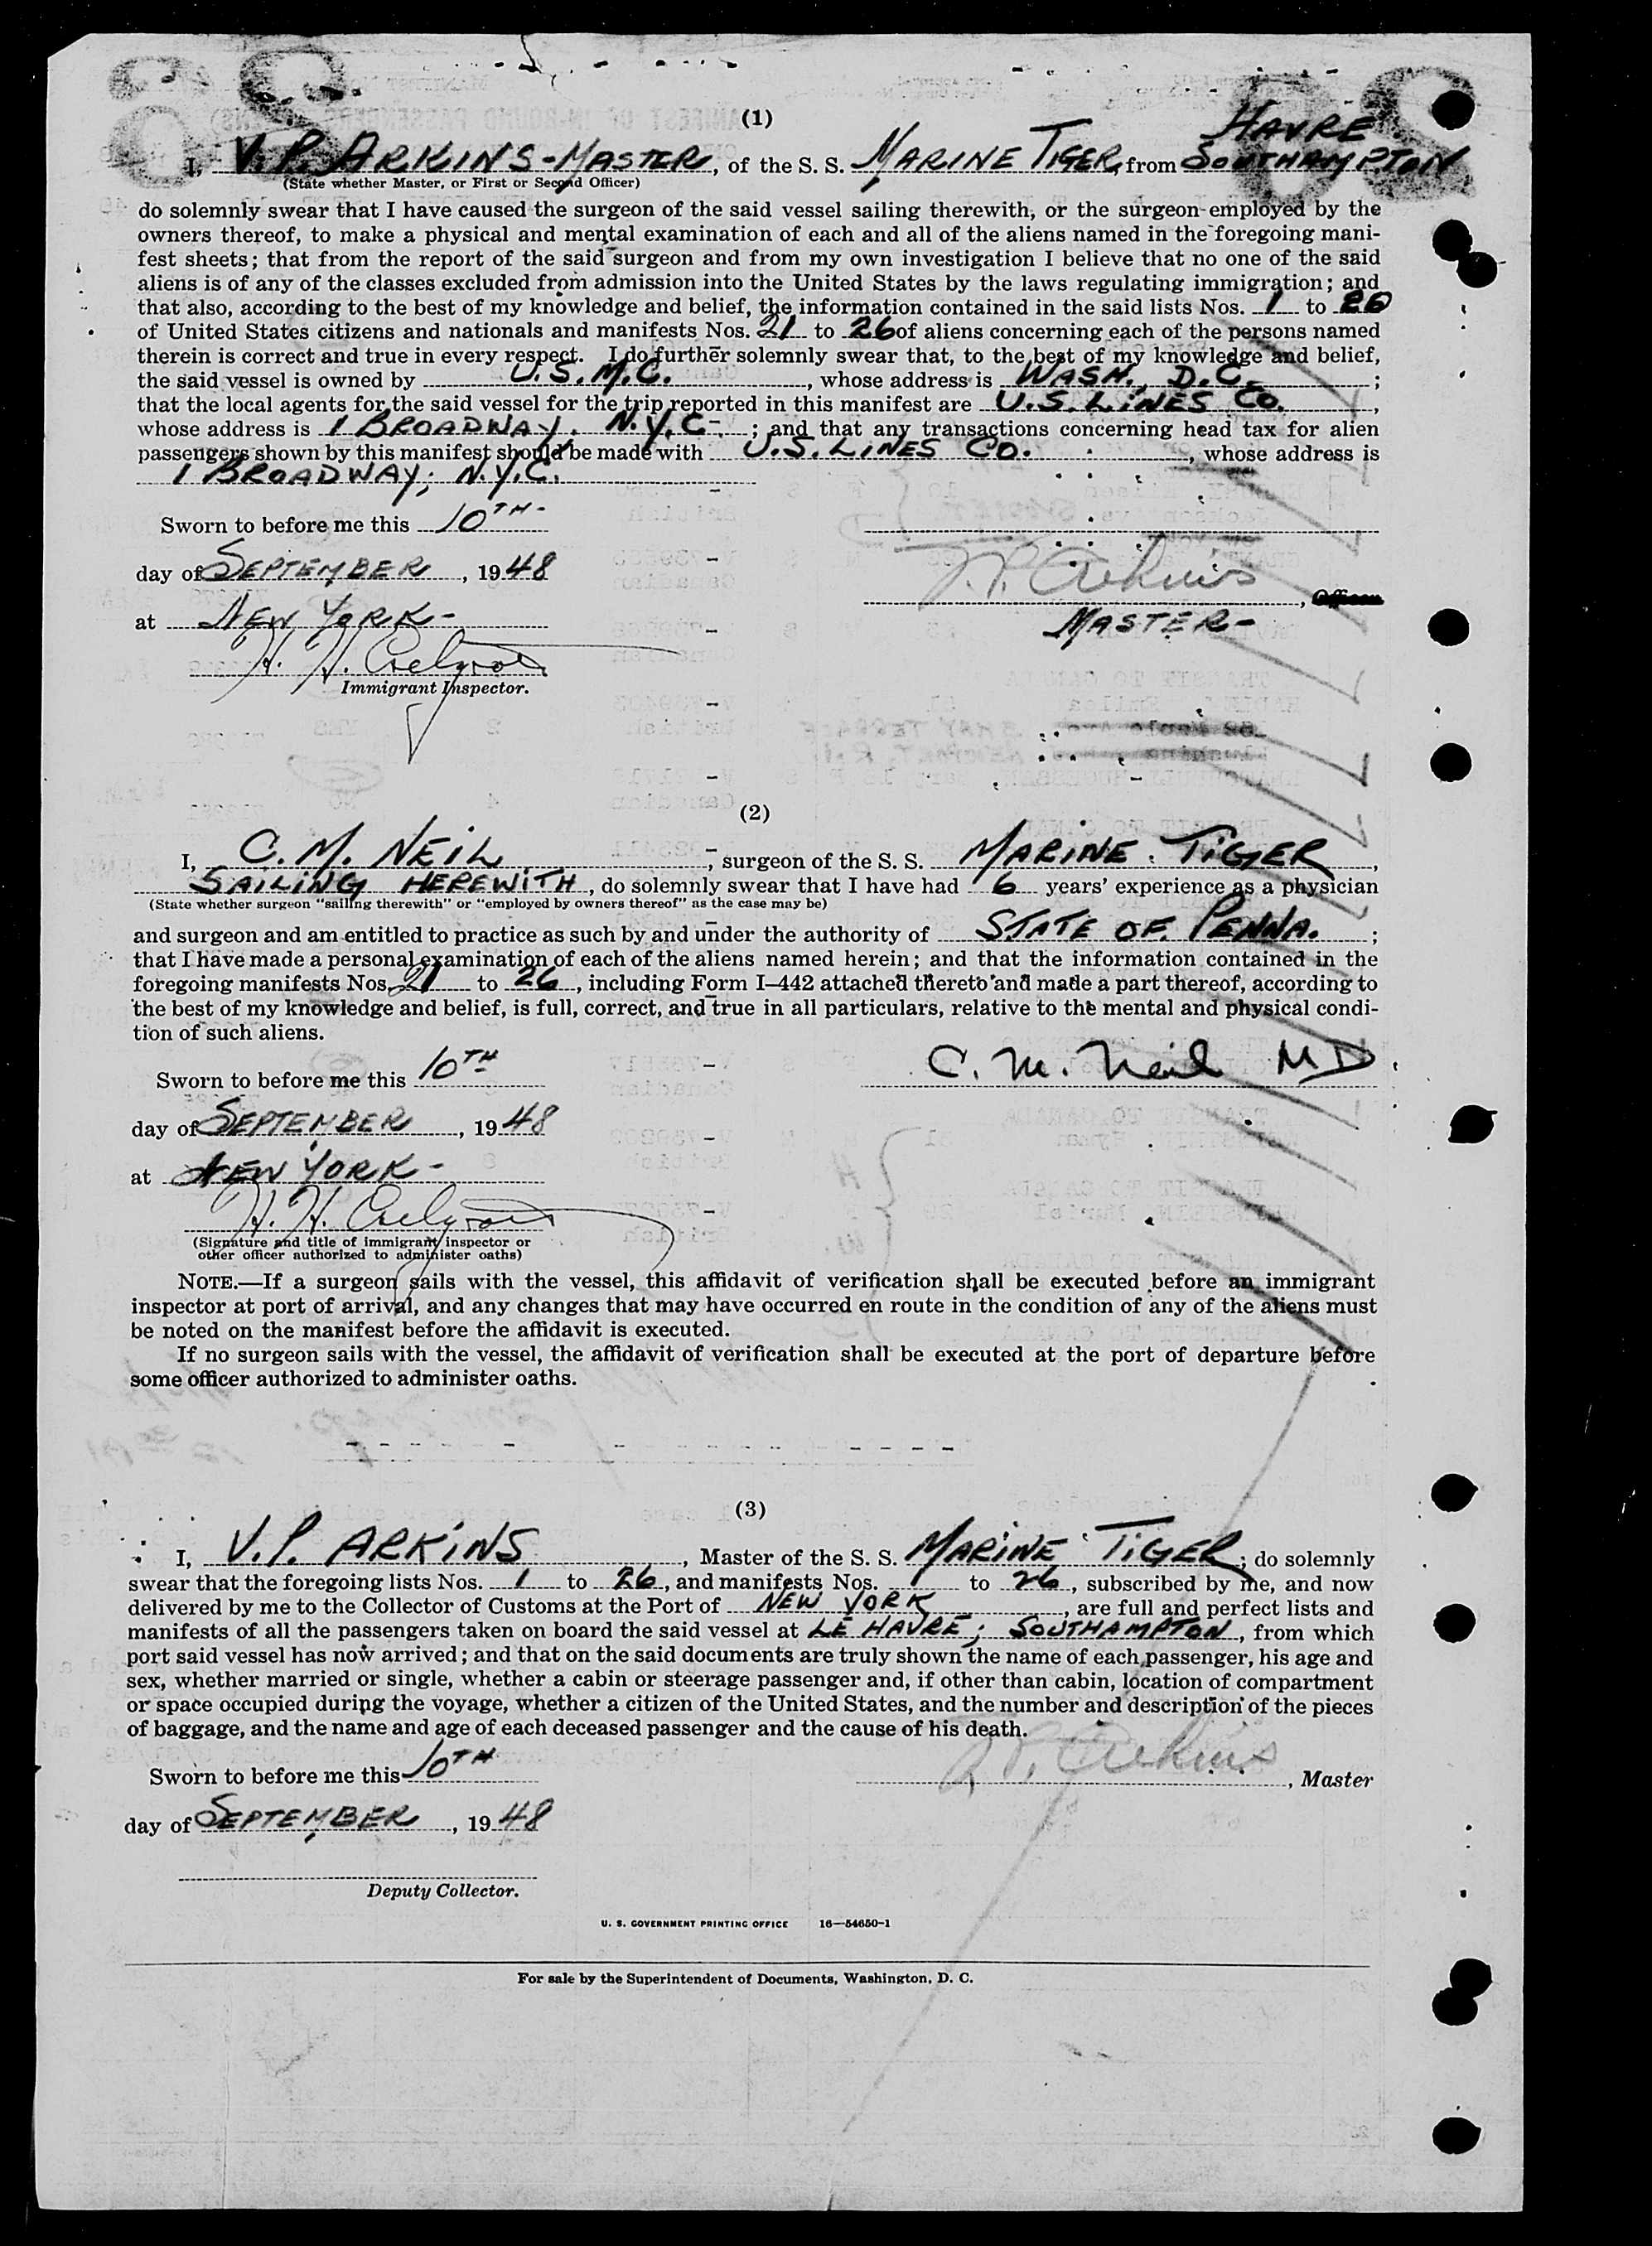 (1)
HAVRE
I, V.P. ARKINS-MASTER, of the S. S. MARINE TIGER, from SOUTHAMPTON
(State whether Master, or First or Second Officer)
do solemnly swear that I have caused the surgeon of the said vessel sailing therewith, or the surgeon employed by the
owners thereof, to make a physical and mental examination of each and all of the aliens named in the foregoing mani-
fest sheets; that from the report of the said surgeon and from my own investigation I believe that no one of the said
aliens is of any of the classes excluded from admission into the United States by the laws regulating immigration; and
that also, according to the best of my knowledge and belief, the information contained in the said lists Nos. 1 to 20
of United States citizens and nationals and manifests Nos. 21 to 26 of aliens concerning each of the persons named
therein is correct and true in every respect. I do further solemnly swear that, to the best of my knowledge and belief,
the said vessel is owned by U.S.M.C., whose address is WASH., D.C. ;
that the local agents for the said vessel for the trip reported in this manifest are U.S. LINES CO. ,
whose address is 1 BROADWAY. N.Y.C- ; and that any transactions concerning head tax for alien
passengers shown by this manifest should be made with U.S. LINES CO. , whose address is
1 BROADWAY; N.Y.C.
Sworn to before me this 10TH-
day of SEPTEMBER , 1948
V.P. Arkins , Officer
at NEW YORK-
MASTER-
H. H.
Immigrant Inspector.
(2)
I, C. M. NEIL , surgeon of the S. S. MARINE TIGER ,
SAILING HEREWITH , do solemnly swear that I have had 6 years' experience as a physician
(State whether surgeon "sailing therewith" or "employed by owners thereof" as the case may be)
and surgeon and am entitled to practice as such by and under the authority of STATE OF PENNA. ;
that I have made a personal examination of each of the aliens named herein; and that the information contained in the
foregoing manifests Nos. 21 to 26 , including Form I-442 attached thereto and made a part thereof, according to
the best of my knowledge and belief, is full, correct, and true in all particulars, relative to the mental and physical condi-
tion of such aliens.
Sworn to before me this 10TH
C. M. Neil MD
day of SEPTEMBER , 1948
at NEW YORK-
H. H.
(Signature and title of immigrant inspector or
other officer authorized to administer oaths)
NOTE.—If a surgeon sails with the vessel, this affidavit of verification shall be executed before an immigrant
inspector at port of arrival, and any changes that may have occurred en route in the condition of any of the aliens must
be noted on the manifest before the affidavit is executed.
If no surgeon sails with the vessel, the affidavit of verification shall be executed at the port of departure before
some officer authorized to administer oaths.
(3)
I, V.P. ARKINS , Master of the S. S. MARINE TIGER; do solemnly
swear that the foregoing lists Nos. 1 to 26 , and manifests Nos. 1 to 26 , subscribed by me, and now
delivered by me to the Collector of Customs at the Port of NEW YORK , are full and perfect lists and
manifests of all the passengers taken on board the said vessel at LE HAVRE; SOUTHAMPTON , from which
port said vessel has now arrived; and that on the said documents are truly shown the name of each passenger, his age and
sex, whether married or single, whether a cabin or steerage passenger and, if other than cabin, location of compartment
or space occupied during the voyage, whether a citizen of the United States, and the number and description of the pieces
of baggage, and the name and age of each deceased passenger and the cause of his death.
Sworn to before me this 10TH
V.P. Arkins , Master
day of SEPTEMBER , 1948
Deputy Collector.
U. S. GOVERNMENT PRINTING OFFICE 16—54650-1
For sale by the Superintendent of Documents, Washington, D. C.